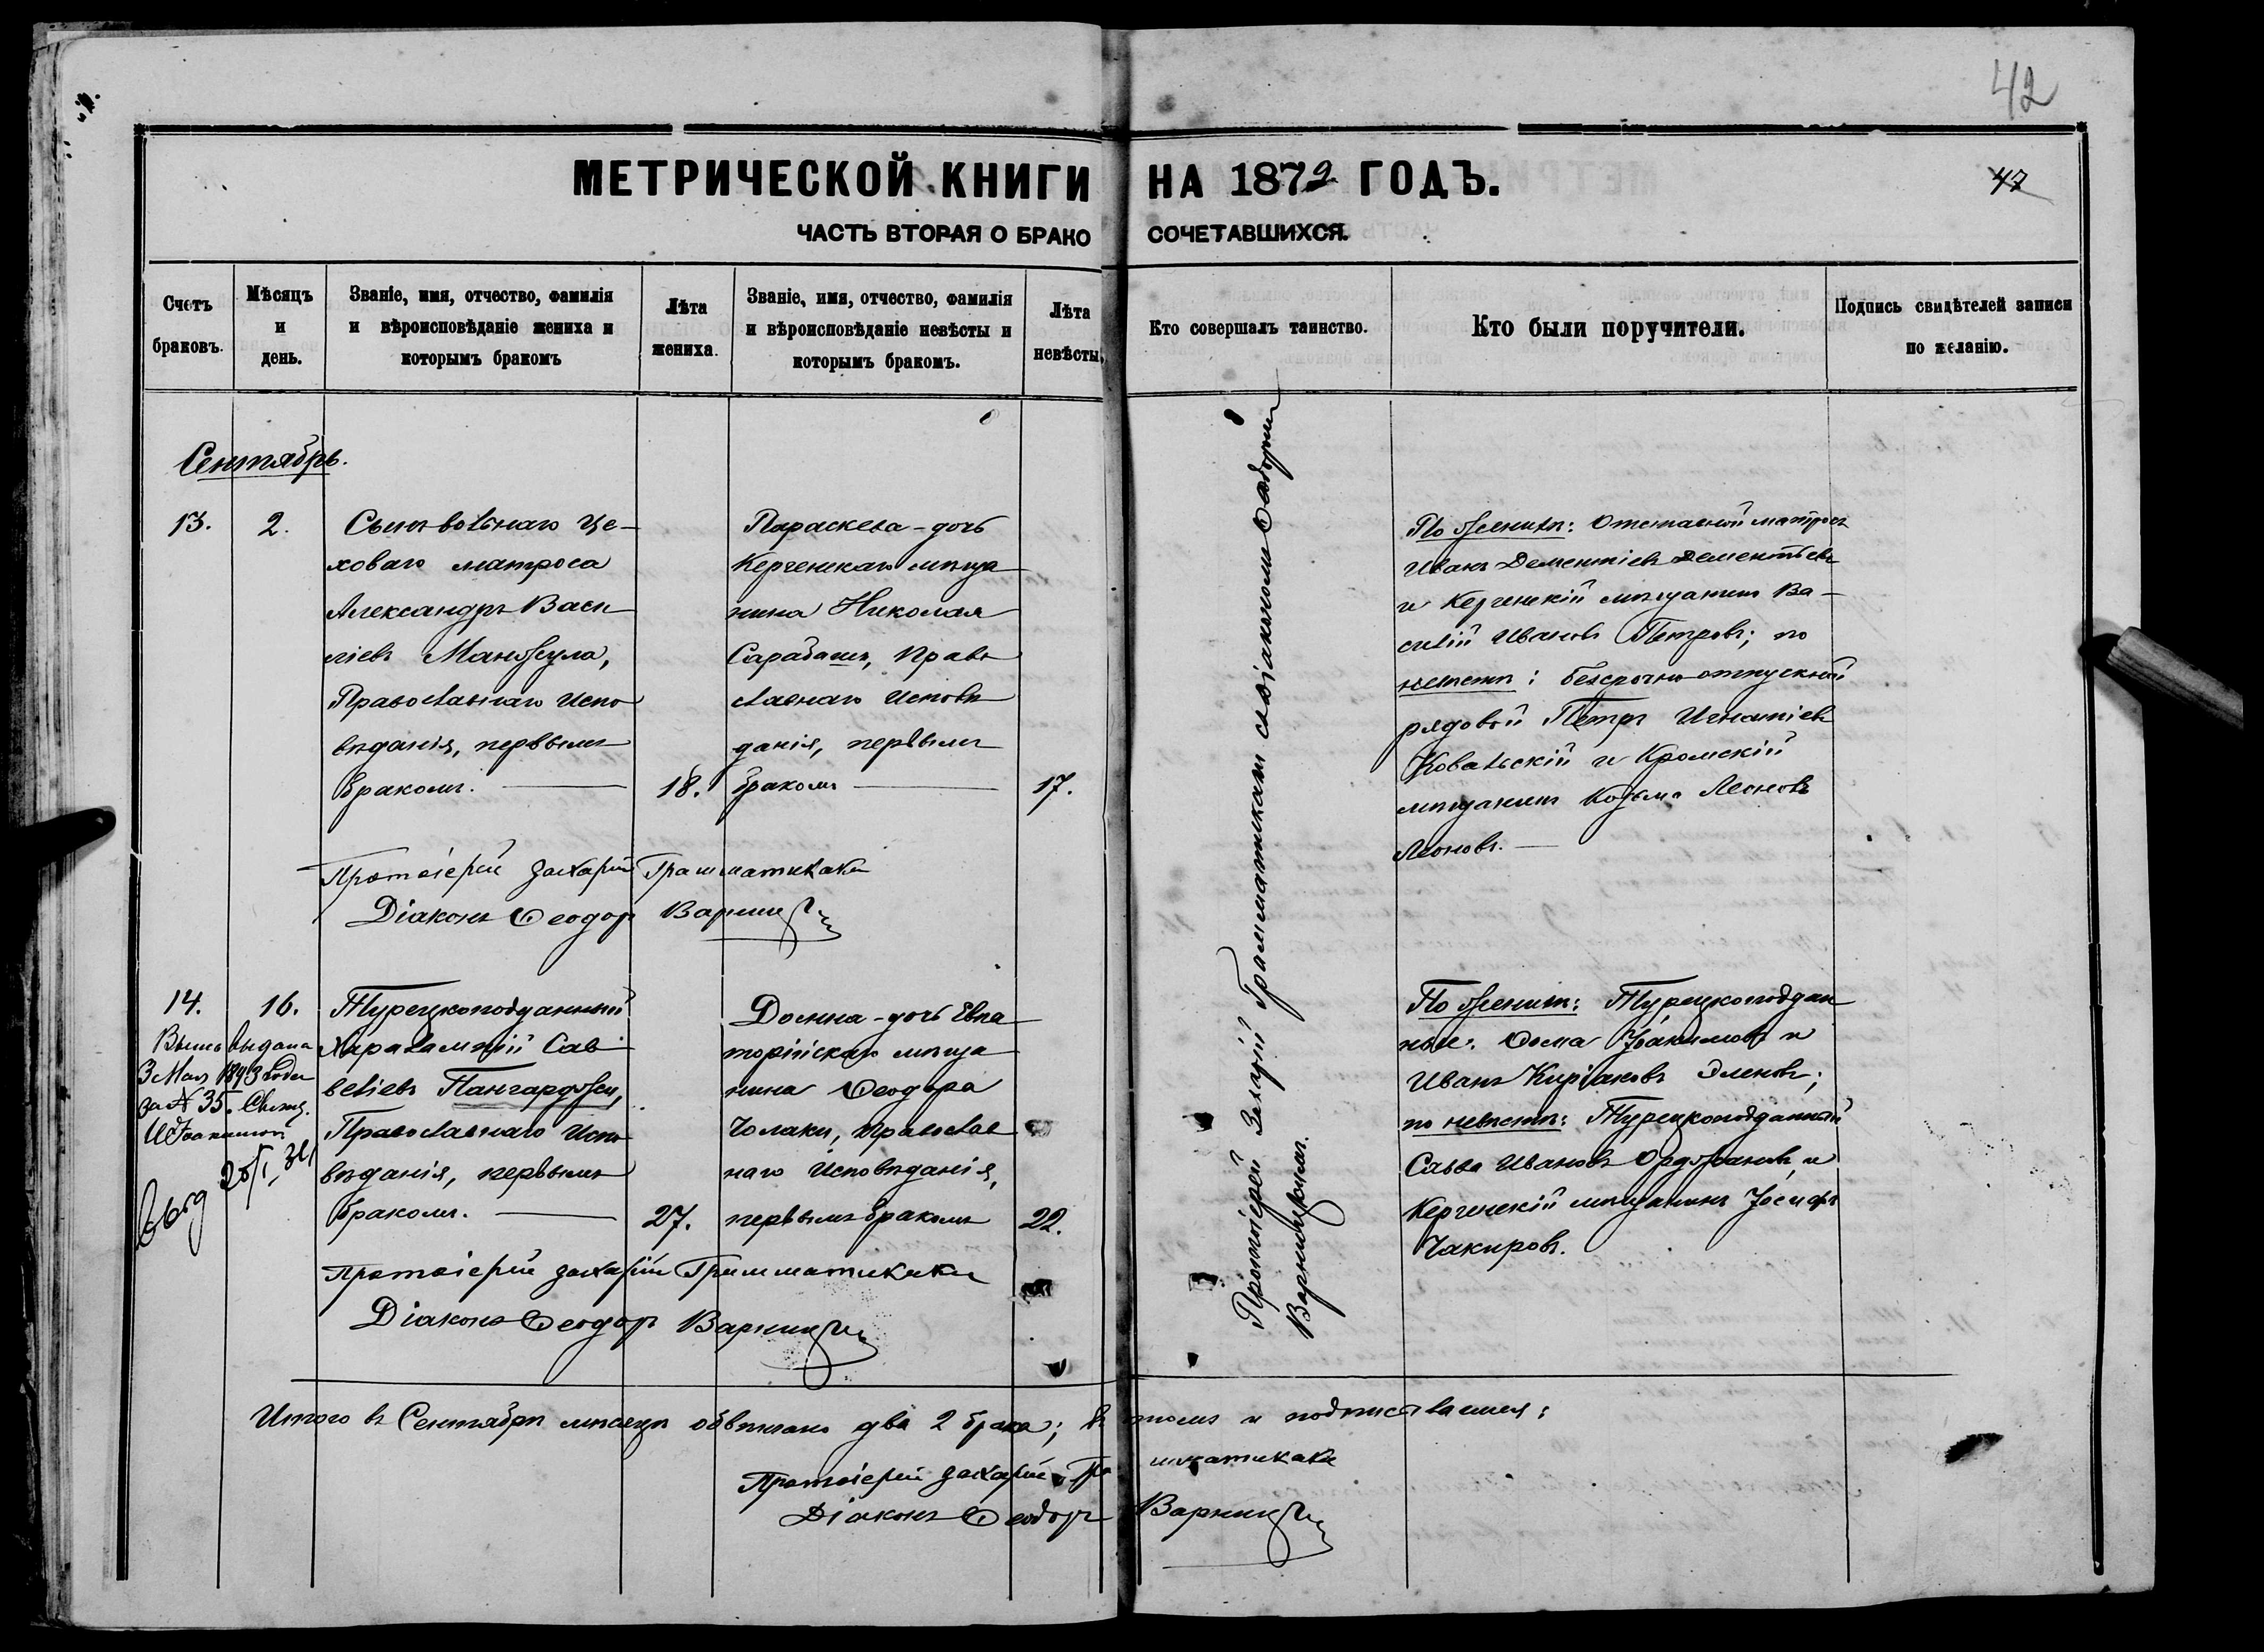 42
МЕТРИЧЕСКОЙ КНИГИ НА 1879 ГОДЪ.
47
ЧАСТЬ ВТОРАЯ О БРАКОСОЧЕТАВШИХСЯ.
Счетъ браковъ.
Мѣсяцъ и день.
Званіе, имя, отчество, фамилія и вѣроисповѣданіе жениха и которымъ бракомъ
Лѣта жениха.
Званіе, имя, отчество, фамилія и вѣроисповѣданіе невѣсты и которымъ бракомъ.
Лѣта невѣсты.
Кто совершалъ таинство.
Кто были поручители.
Подпись свидѣтелей записи по желанію.
Сентябрь.
13.
2.
Сынъ вольнаго це-
ховаго матроса
Александръ Васи
ліевъ Манжула,
Православнаго Испо
вѣданія, первымъ
бракомъ.
18.
Параскева - дочь
Керченскаго мѣща
нина Николая
Сарабаша, Право
славнаго Исповѣ
данія, первымъ
бракомъ
17.
Протоіерей Захарій Грамматикаки
Діаконъ Ѳеодоръ
По женихѣ: Отставной матросъ
Иванъ Дементіевъ Дементьевъ
и Керченскій мѣщанинъ Ва-
силій Ивановъ Петровъ; по
невѣстѣ: безсрочно-отпускной
рядовой Петръ Игнатіевъ
Ковальскій и Кромскій
мѣщанинъ Козьма Леоновъ
Леоновъ.
Протоіерей Захарій Грамматикаки съ діакономъ Ѳеодоромъ
14.
16.
выдана
3 Мая 1893 года
за № 35.
Турецкоподданный
Харалампій Сав
веліевъ Пангарджи,
Православнаго Испо
вѣданія, первымъ
бракомъ.
27.
Домна - дочь Евпа
торійскаго мѣща
нина Ѳеодора
Чолаки, Православ
наго Исповѣданія,
первымъ бракомъ
22.
Протоіерей Захарій Грамматикаки
Діаконъ Ѳеодоръ
По женихѣ: Турецкоподдан
ные: Ѳома Іоакимовъ и
Иванъ Киріаковъ Эленовъ;
по невѣстѣ: Турецкоподданный
Савва Ивановъ и
Керченскій мѣщанинъ Іосифъ
Чакировъ.
Итого въ Сентябрѣ мѣсяцѣ обвѣнчано два 2 брака; въ томъ и подписываемся:
Протоіерей Захарій Грамматикаки
Діаконъ Ѳеодоръ